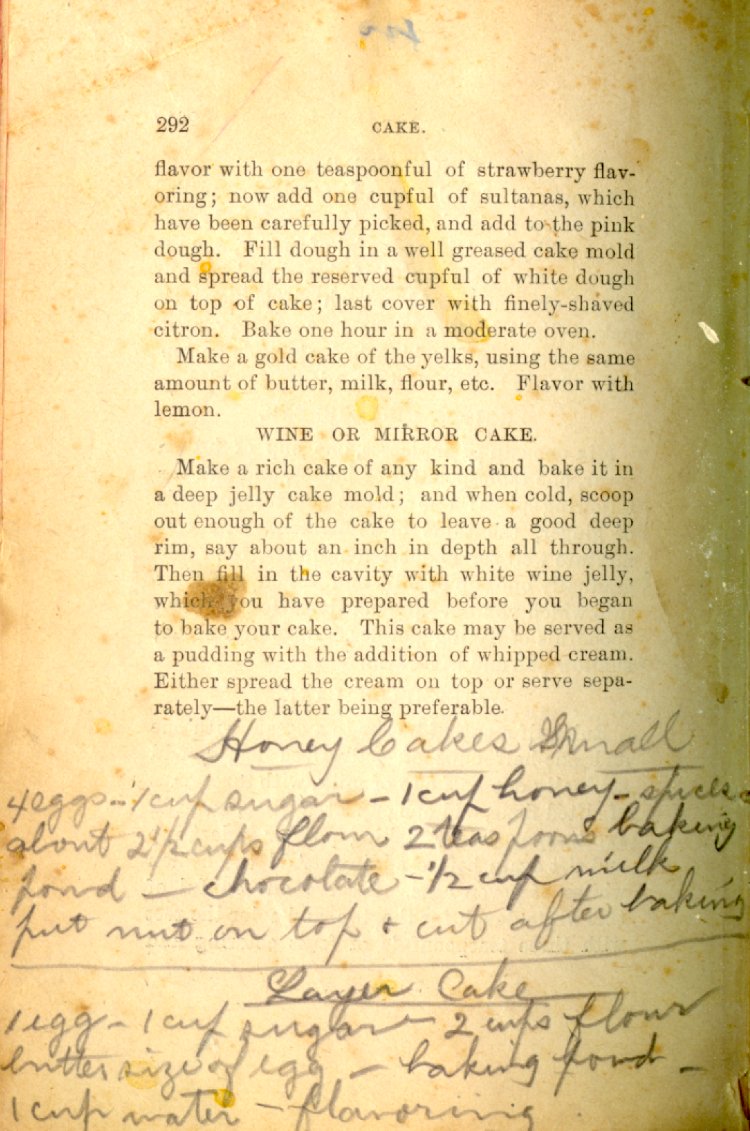 292 CAKE.
flavor with one teaspoonful of strawberry flav-
oring; now add one cupful of sultanas, which
have been carefully picked, and add to the pink
dough. Fill dough in a well greased cake mold
and spread the reserved cupful of white dough
on top of cake; last cover with finely-shaved
citron. Bake one hour in a moderate oven.
Make a gold cake of the yelks, using the same
amount of butter, milk, flour, etc. Flavor with
lemon.
WINE OR MIRROR CAKE.
Make a rich cake of any kind and bake it in
a deep jelly cake mold; and when cold, scoop
out enough of the cake to leave a good deep
rim, say about an inch in depth all through.
Then fill in the cavity with white wine jelly,
which you have prepared before you began
to bake your cake. This cake may be served as
a pudding with the addition of whipped cream.
Either spread the cream on top or serve sepa-
rately—the latter being preferable.
Honey Cakes Small
4 eggs - 1 cup sugar - 1 cup honey - spices -
about 2 1/2 cups flour 2 teaspoons baking
powd - chocolate - 1/2 cup milk
put nut on top + cut after baking
Layer Cake
1 egg - 1 cup sugar - 2 cups flour
butter size of egg - baking powd -
1 cup water - flavoring